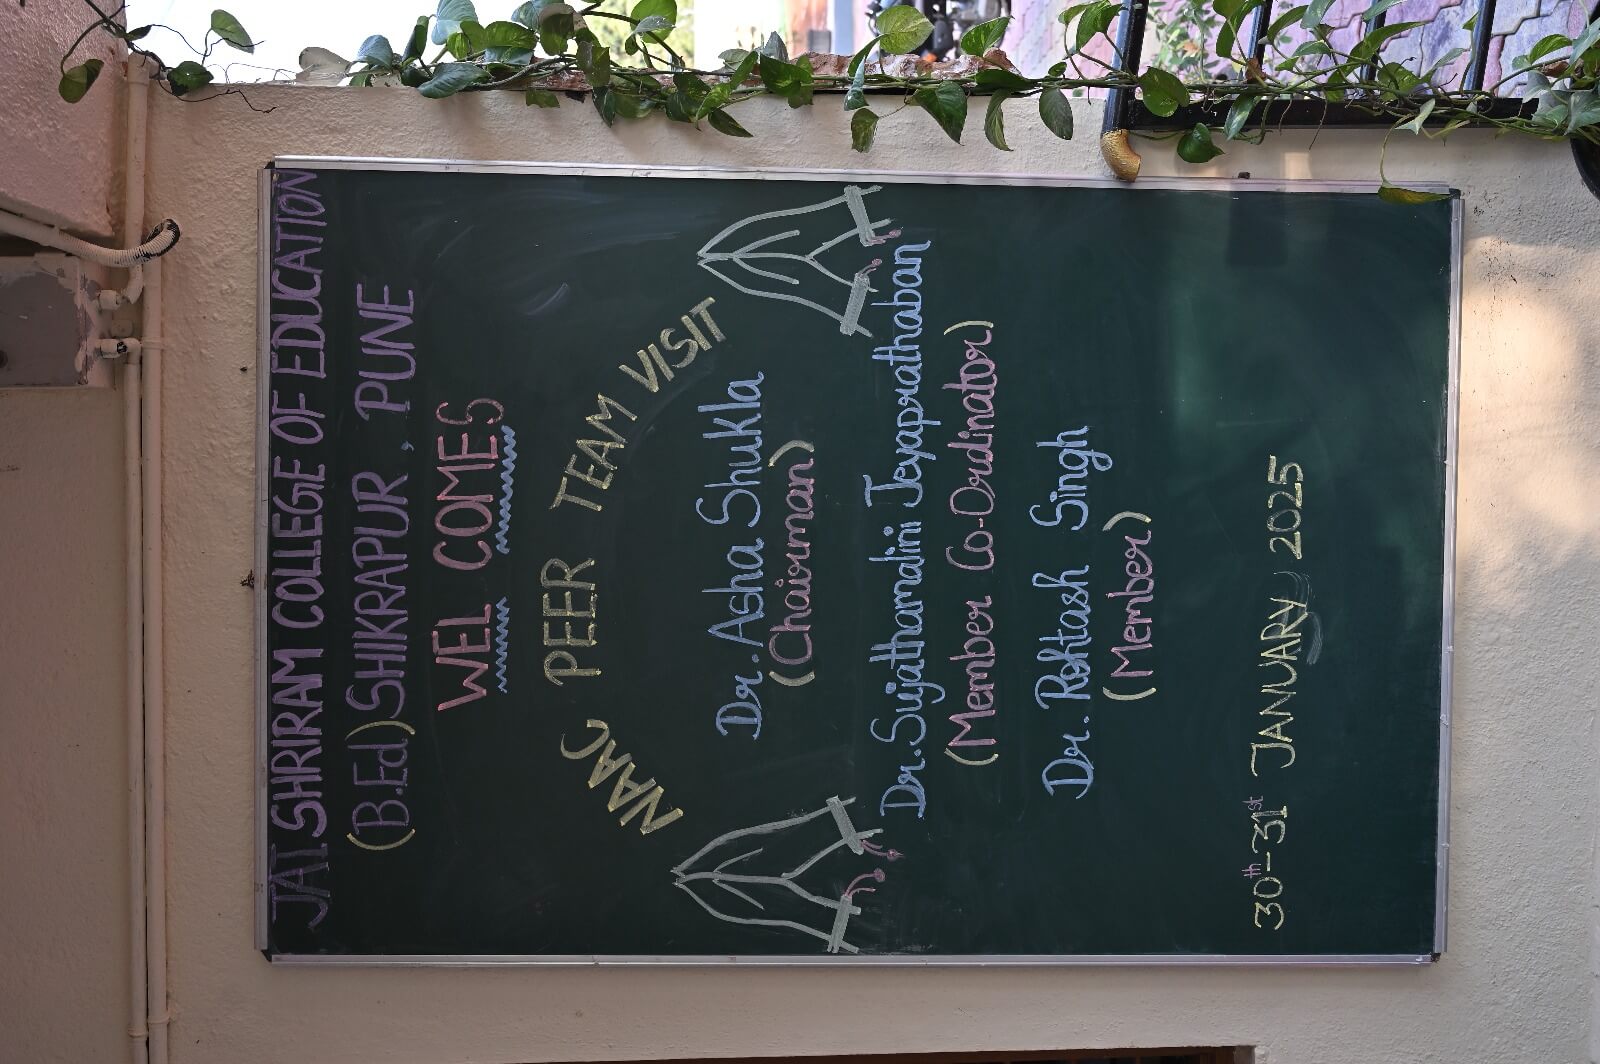 JAI SHRIRAM COLLEGE OF EDUCATION
(B.Ed) SHIKRAPUR, PUNE
WEL COMES
NAAC PEER TEAM VISIT
Dr. Asha Shukla
(Chairman)
Dr. Sujathamalini Jeyaprathaban
(Member Co-Ordinator)
Dr. Rohtash Singh
(Member)
30th-31st JANUARY 2025